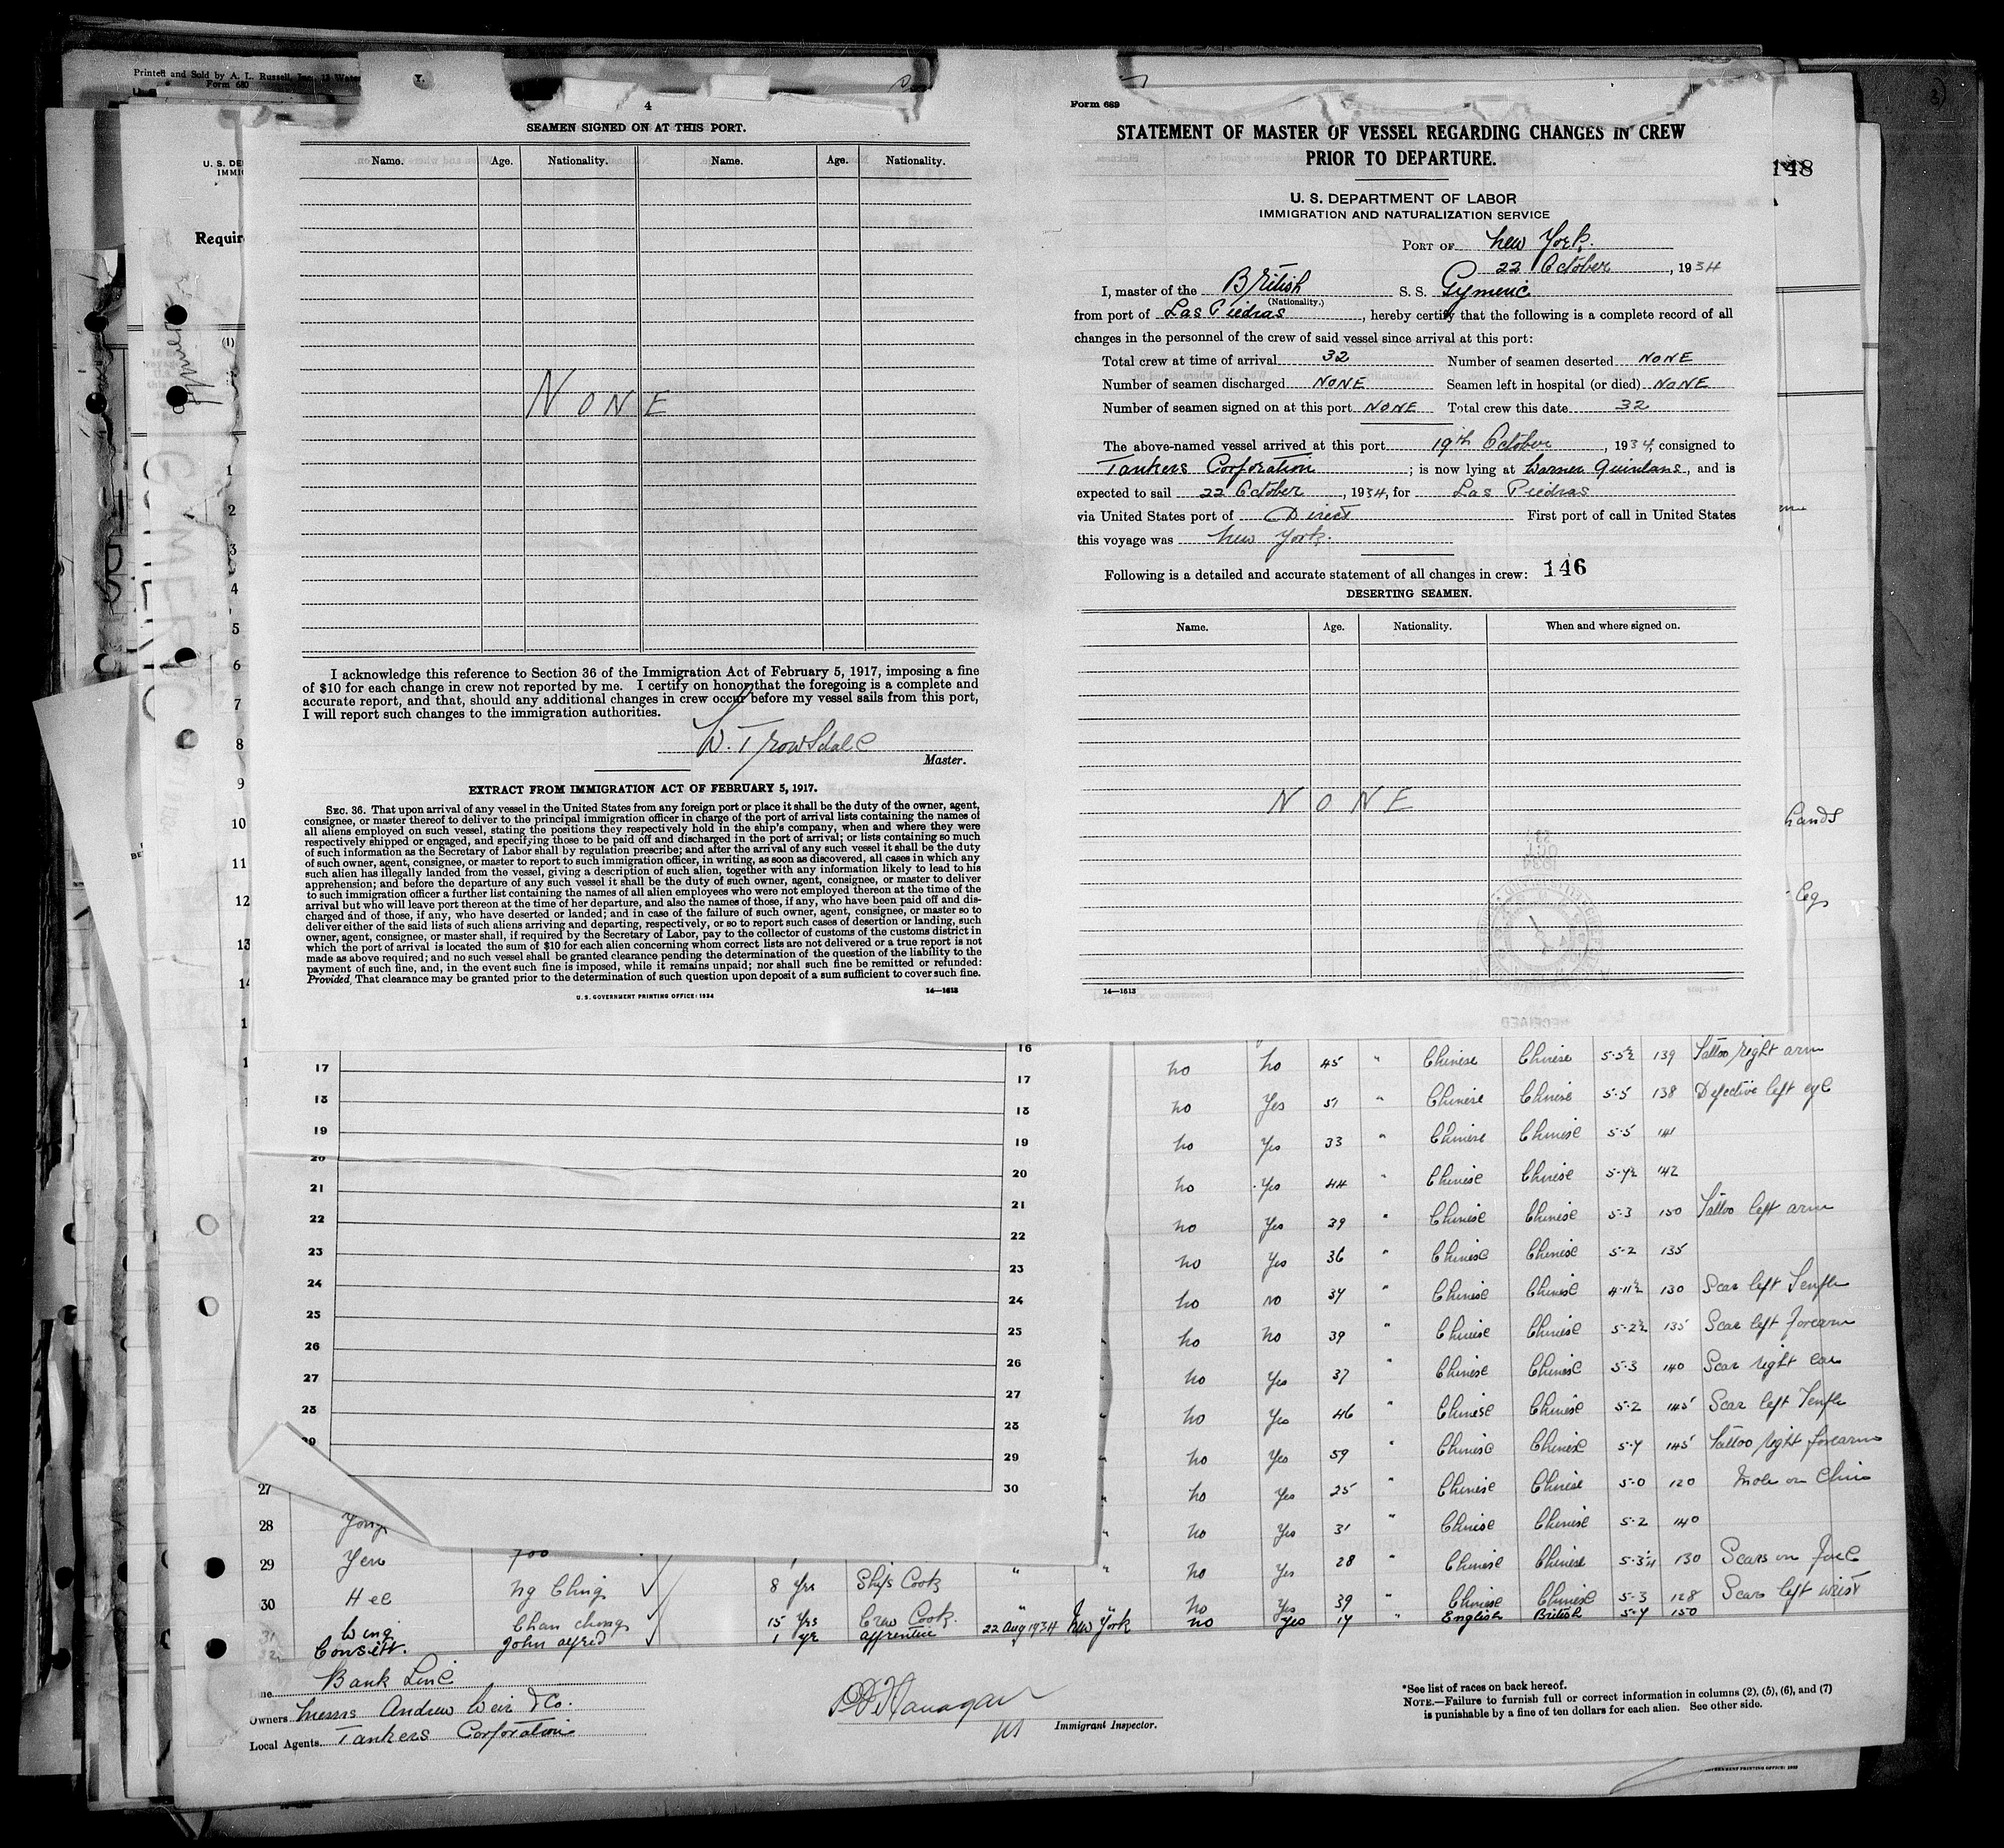 Printed and Sold by A. L. Russell, Inc., 13 Water
Form 680
Y.
148
U. S. DE
IMMI
Requir
(1)
4
SEAMEN SIGNED ON AT THIS PORT.
Name. Age. Nationality. Name. Age. Nationality.
NONE
I acknowledge this reference to Section 36 of the Immigration Act of February 5, 1917, imposing a fine
of $10 for each change in crew not reported by me. I certify on honor that the foregoing is a complete and
accurate report, and that, should any additional changes in crew occur before my vessel sails from this port,
I will report such changes to the immigration authorities.
W. Trowsdale
Master.
EXTRACT FROM IMMIGRATION ACT OF FEBRUARY 5, 1917.
SEC. 36. That upon arrival of any vessel in the United States from any foreign port or place it shall be the duty of the owner, agent,
consignee, or master thereof to deliver to the principal immigration officer in charge of the port of arrival lists containing the names of
all aliens employed on such vessel, stating the positions they respectively hold in the ship's company, when and where they were
respectively shipped or engaged, and specifying those to be paid off and discharged in the port of arrival; or lists containing so much
of such information as the Secretary of Labor shall by regulation prescribe; and after the arrival of any such vessel it shall be the duty
of such owner, agent, consignee, or master to report to such immigration officer, in writing, as soon as discovered, all cases in which any
such alien has illegally landed from the vessel, giving a description of such alien, together with any information likely to lead to his
apprehension; and before the departure of any such vessel it shall be the duty of such owner, agent, consignee, or master to deliver
to such immigration officer a further list containing the names of all alien employees who were not employed thereon at the time of the
arrival but who will leave port thereon at the time of her departure, and also the names of those, if any, who have been paid off and dis-
charged and of those, if any, who have deserted or landed; and in case of the failure of such owner, agent, consignee, or master so to
deliver either of the said lists of such aliens arriving and departing, respectively, or so to report such cases of desertion or landing, such
owner, agent, consignee, or master shall, if required by the Secretary of Labor, pay to the collector of customs of the customs district in
which the port of arrival is located the sum of $10 for each alien concerning whom correct lists are not delivered or a true report is not
made as above required; and no such vessel shall be granted clearance pending the determination of the question of the liability to the
payment of such fine, and, in the event such fine is imposed, while it remains unpaid; nor shall such fine be remitted or refunded:
Provided, That clearance may be granted prior to the determination of such question upon deposit of a sum sufficient to cover such fine.
U. S. GOVERNMENT PRINTING OFFICE: 1934 14—1613
Form 689
STATEMENT OF MASTER OF VESSEL REGARDING CHANGES IN CREW
PRIOR TO DEPARTURE.
U. S. DEPARTMENT OF LABOR
IMMIGRATION AND NATURALIZATION SERVICE
PORT OF New York.
22 October, 1934
I, master of the British S. S. Gymeric
(Nationality.)
from port of Las Piedras, hereby certify that the following is a complete record of all
changes in the personnel of the crew of said vessel since arrival at this port:
Total crew at time of arrival 32 Number of seamen deserted NONE
Number of seamen discharged NONE Seamen left in hospital (or died) NONE
Number of seamen signed on at this port NONE Total crew this date 32
The above-named vessel arrived at this port 19th October, 1934, consigned to
Tankers Corporation; is now lying at Warner Quinlans, and is
expected to sail 22 October, 1934, for Las Piedras
via United States port of Direct First port of call in United States
this voyage was New York.
Following is a detailed and accurate statement of all changes in crew: 146
DESERTING SEAMEN.
Name. Age. Nationality. When and where signed on.
NONE
14—1613
hands
leg
1
2
3
4
5
6
7
8
9
10
11
12
13
16
17 17
18 18
19 19
20 20
21 21
22 22
23 23
24 24
25 25
26 26
27 27
28 28
29 29
30
no no 45 " Chinese Chinese 5-5½ 139 Tattoo right arm
no Yes 51 " Chinese Chinese 5-5 138 Defective left eye
no Yes 33 " Chinese Chinese 5-5 141
no Yes 44 " Chinese Chinese 5-4½ 142
no Yes 39 " Chinese Chinese 5-3 150 Tattoo left arm
no Yes 36 " Chinese Chinese 5-2 135
no no 34 " Chinese Chinese 4-11½ 130 Scar left Temple
no no 39 " Chinese Chinese 5-2½ 135 Scar left forearm
no Yes 37 " Chinese Chinese 5-3 140 Scar right ear
no Yes 46 " Chinese Chinese 5-2 145 Scar left Temple
no Yes 59 " Chinese Chinese 5-4 145 Tattoo right forearm
27 no Yes 25 " Chinese Chinese 5-0 120 Mole on Chin
28 Yong no Yes 31 " Chinese Chinese 5-2 140
29 Yen Foo " " no Yes 28 " Chinese Chinese 5-3¼ 130 Scars on Face
30 Hee Ng Ching 8 Yrs Ships Cook " " no Yes 39 " Chinese Chinese 5-3 128 Scar left wrist
31 Wing Chan Chong 15 Yrs Crew Cook.
32 Consitt. John Alfred 1 yr apprentice 22 Aug 1934 New York no Yes 17 " English British 5-4 150
Line Bank Line
Owners Messrs Andrew Weir & Co.
Local Agents. Tankers Corporation
Immigrant Inspector.
*See list of races on back hereof.
NOTE.—Failure to furnish full or correct information in columns (2), (5), (6), and (7)
is punishable by a fine of ten dollars for each alien. See other side.
GOVERNMENT PRINTING OFFICE: 1933